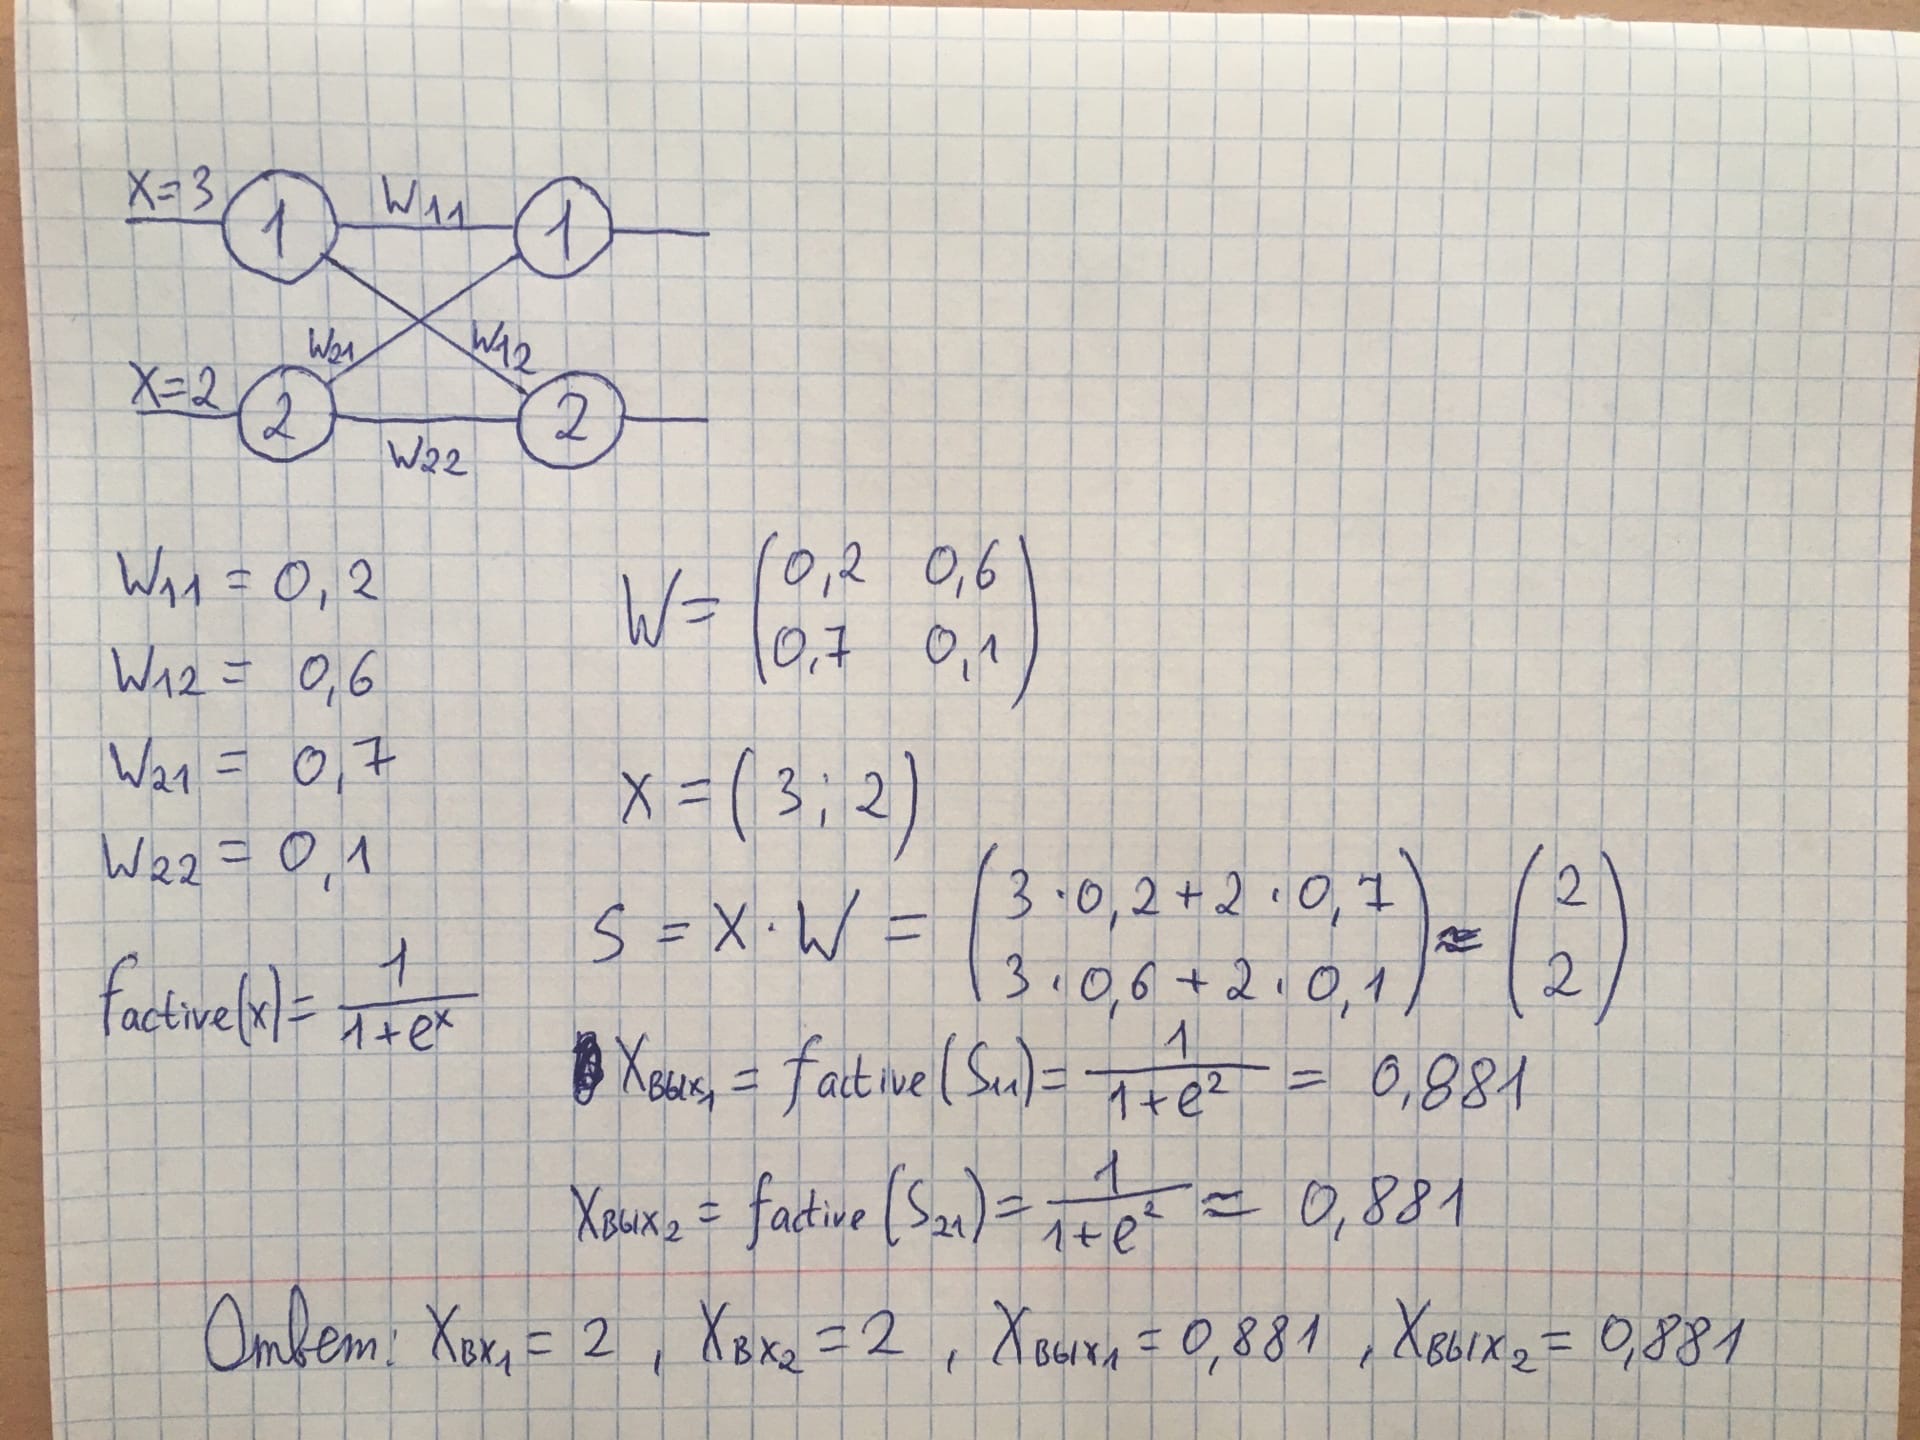 X=3 1 W11 1
W21 W12
X=2 2 W22 2
W11 = 0,2
W12 = 0,6
W21 = 0,7
W22 = 0,1
factive(x) = 1/(1+e^x)
W = (0,2 0,6
0,7 0,1)
X = (3; 2)
S = X · W = (3·0,2 + 2·0,7
3·0,6 + 2·0,1) ≈ (2
2)
Xвых1 = factive(S11) = 1/(1+e^2) = 0,881
Xвых2 = factive(S21) = 1/(1+e^2) ≈ 0,881
Ответ: Xвх1 = 2 , Xвх2 = 2 , Xвых1 = 0,881 , Xвых2 = 0,881